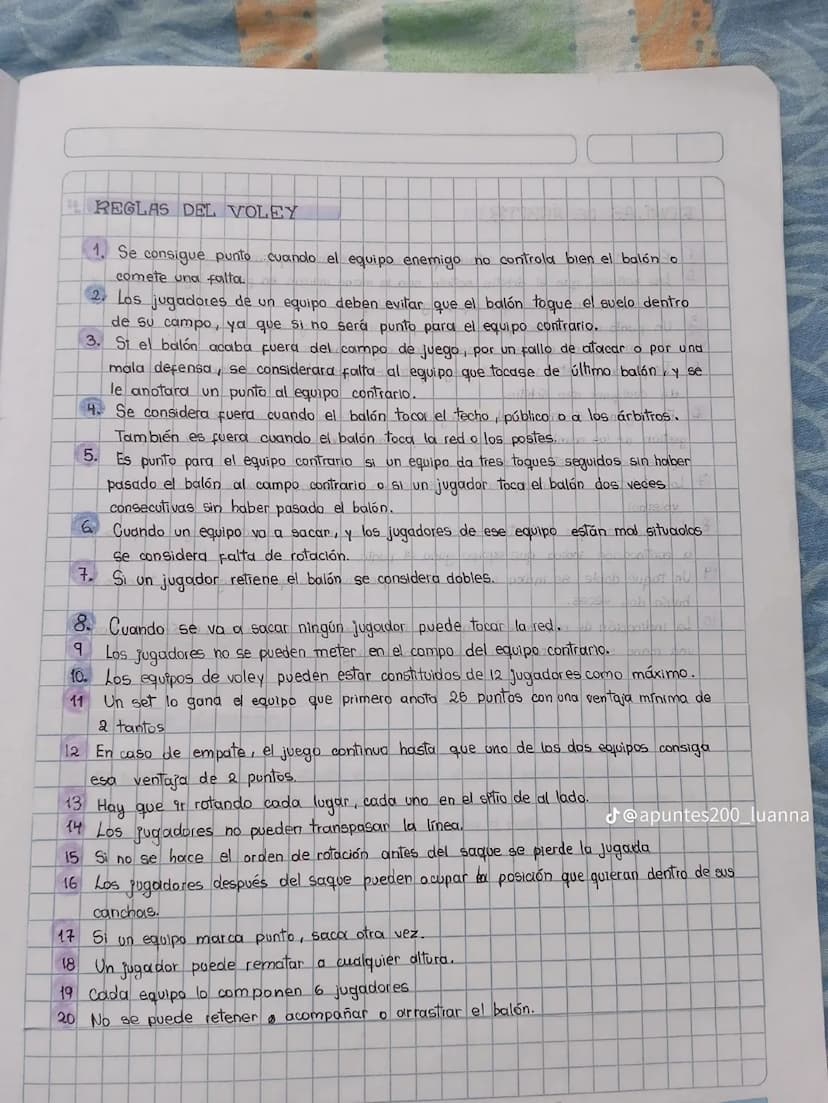 REGLAS DEL VOLEY
1. Se consigue punto cuando el equipo enemigo no controla bien el balón o
comete una falta.
2. Los jugadores de un equipo deben evitar que el balón toque el suelo dentro
de su campo, ya que si no será punto para el equipo contrario.
3. Si el balón acaba fuera del campo de juego, por un fallo de atacar o por una
mala defensa, se considerara falta al equipo que tocase de último balón, y se
le anotara un punto al equipo contrario.
4. Se considera fuera cuando el balón toca el techo, público o a los árbitros.
También es fuera cuando el balón toca la red o los postes.
5. Es punto para el equipo contrario si un equipo da tres toques seguidos sin haber
pasado el balón al campo contrario o si un jugador toca el balón dos veces
consecutivas sin haber pasado el balón.
6. Cuando un equipo va a sacar, y los jugadores de ese equipo están mal situados
se considera falta de rotación.
7. Si un jugador retiene el balón se considera dobles.
8. Cuando se va a sacar ningún jugador puede tocar la red.
9 Los jugadores no se pueden meter en el campo del equipo contrario.
10. Los equipos de voley pueden estar constituidos de 12 jugadores como máximo.
11 Un set lo gana el equipo que primero anota 25 puntos con una ventaja mínima de
2 tantos
12 En caso de empate, el juego continua hasta que uno de los dos equipos consiga
esa ventaja de 2 puntos.
13 Hay que ir rotando cada lugar, cada uno en el sitio de al lado.
14 Los jugadores no pueden transpasar la línea.
15 Si no se hace el orden de rotación antes del saque se pierde la jugada
16 Los jugadores después del saque pueden ocupar la posición que quieran dentro de sus
canchas.
17 Si un equipo marca punto, saca otra vez.
18 Un jugador puede rematar a cualquier altura.
19 Cada equipo lo componen 6 jugadores
20 No se puede retener o acompañar o arrastrar el balón.
@apuntes200_luanna